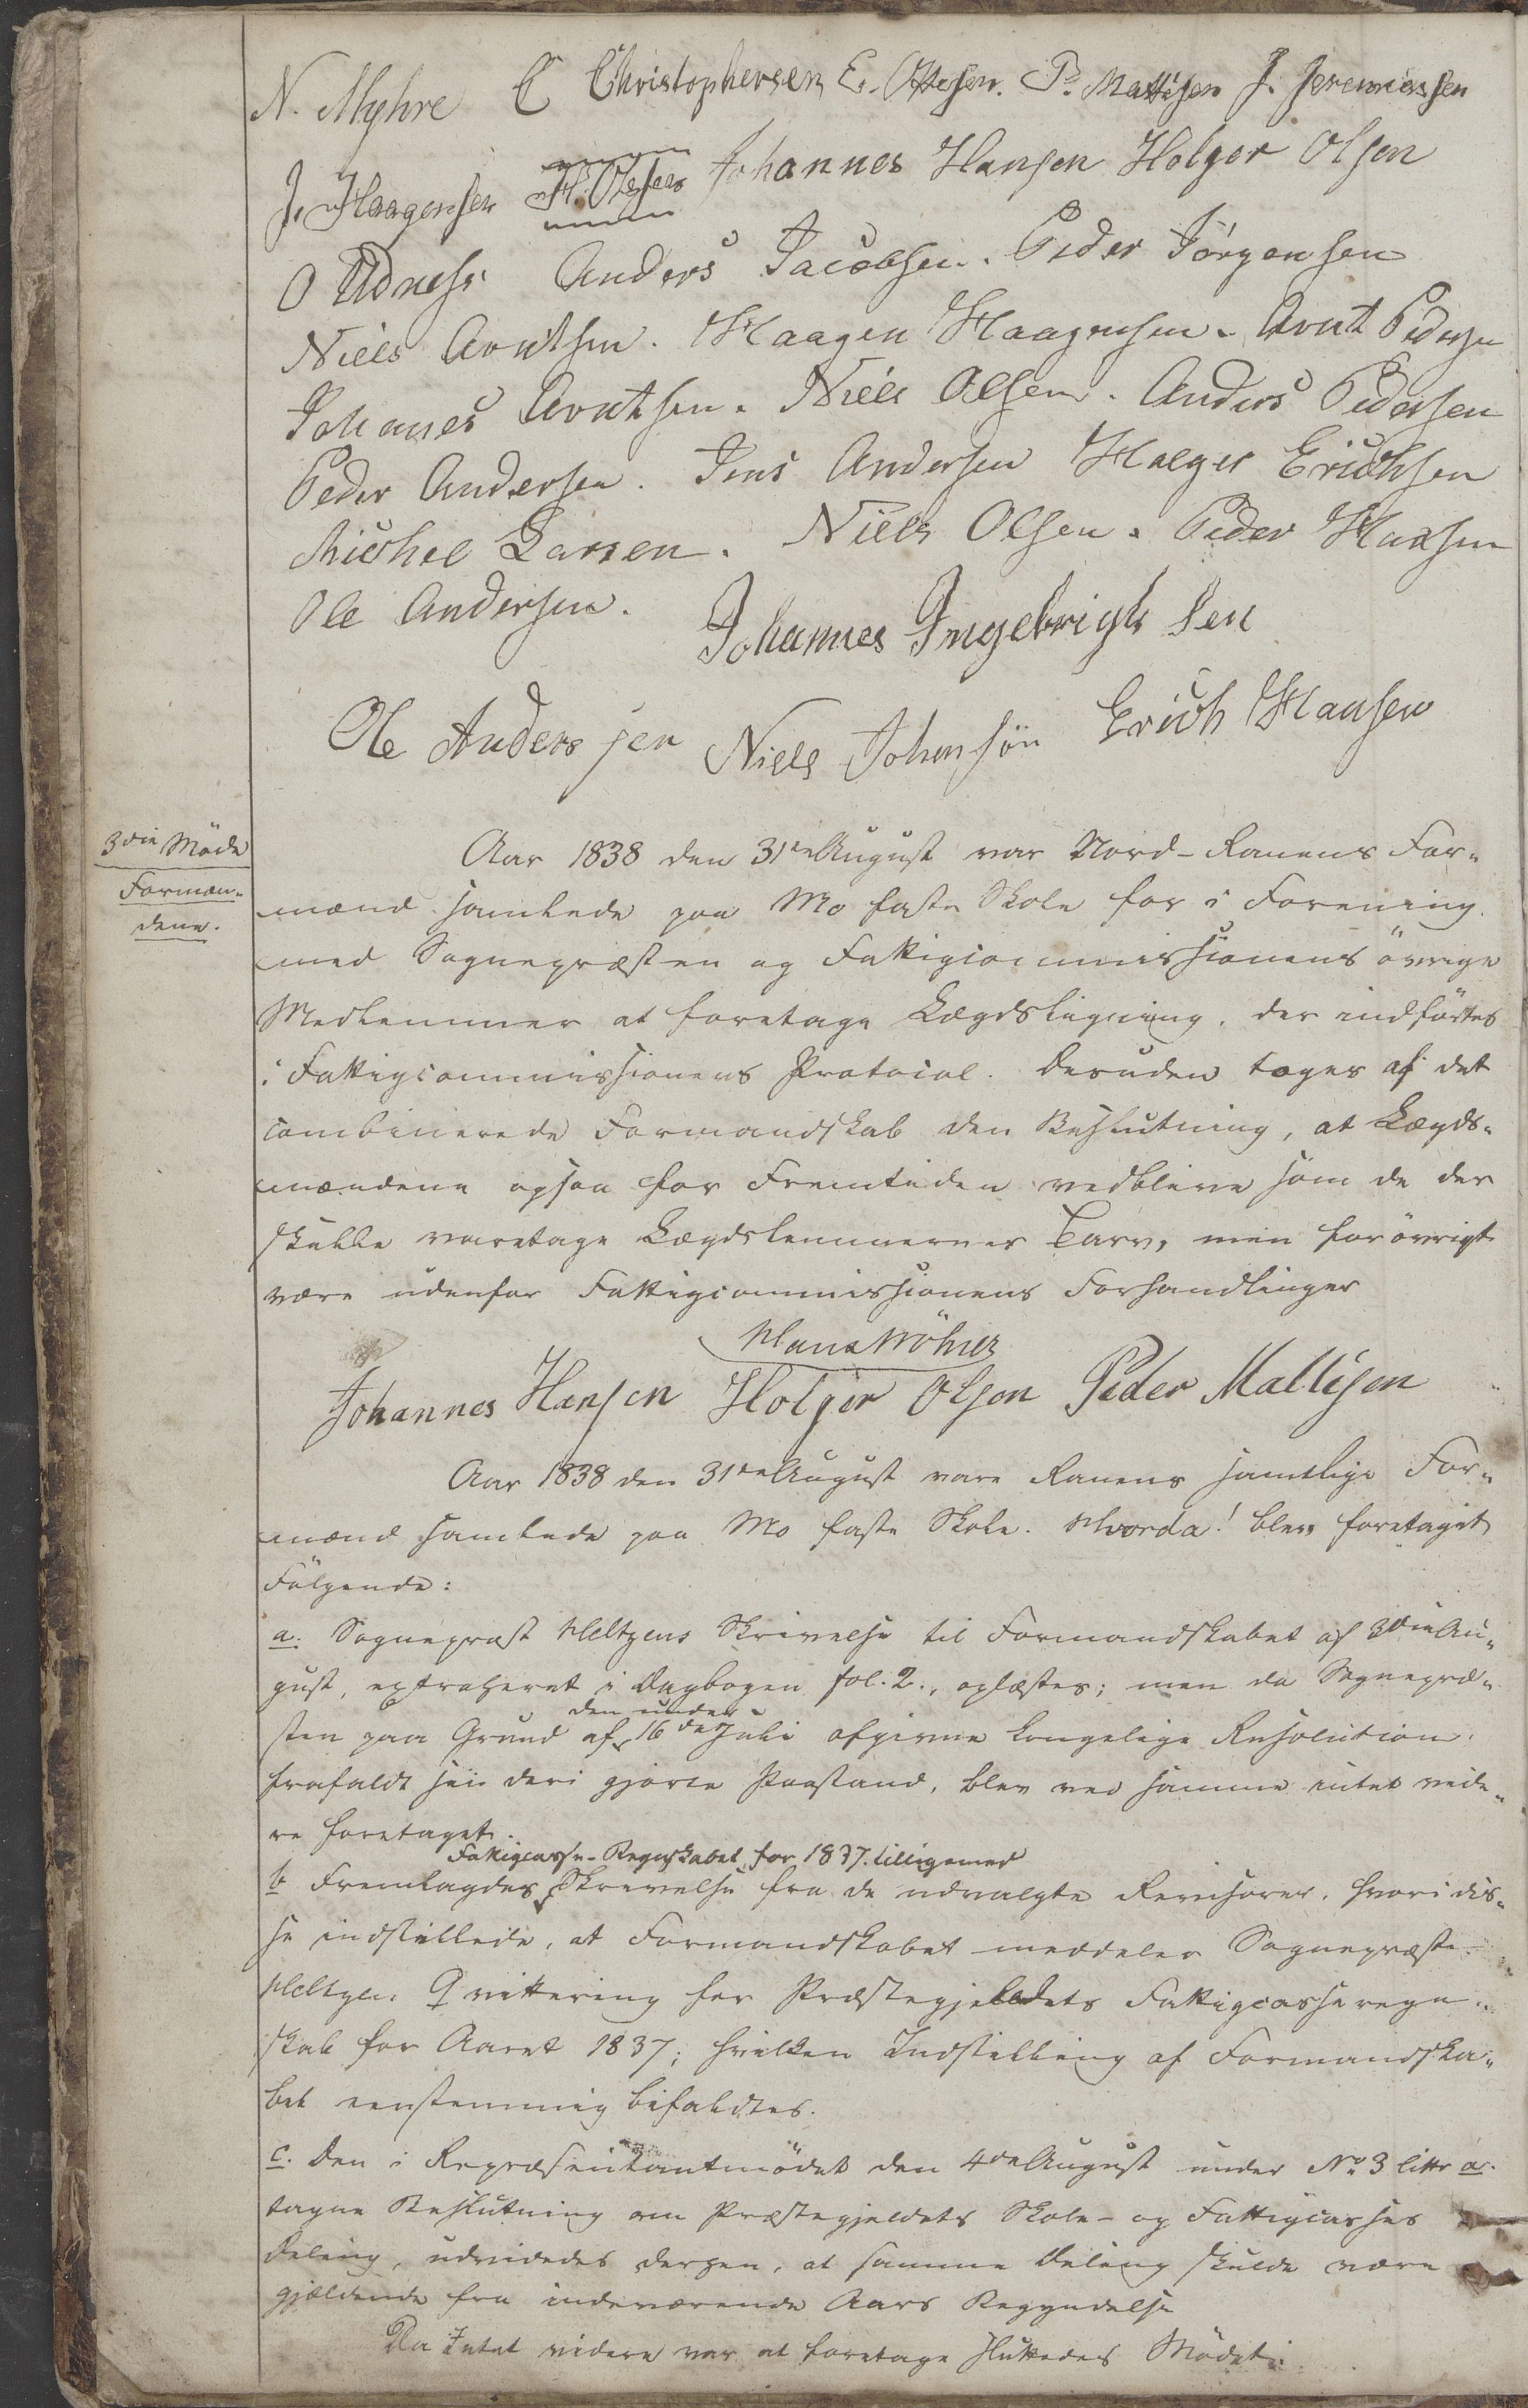 N. Myhre C Christophersen E. Ottesen. P. Mattisen J. Jeremiassen
J. Haagensen H. Olsen Johannes Hansen Holger Olsen
O Udness Anders Jacobsen. Peder Jörgensen
Niels Arntsen. Haagen Haagensen. Arnt Pedersen
Johanes Arntsen. Niels Olsen. Anders Pedersen
Peder Andersen. Jens Andersen Holger Erichsen
Michel Larsen. Niels Olsen. Peder Hansen
Ole Andersen. Johannes Ingebrigtsen
Ole Andersen Niels Johansön Erich Hansen
3die Möde
Formæn-
dene.
Aar 1838 den 31te August var Nord-Ranens For-
mænd samlede paa Mo faste Skole for i Forening
med Sognepræsten og Fattigcommissionens övrige
Medlemmer at foretage Lægdsligning, der indförtes
i Fattigcommissionens Protocol. Desuden toges af det
combinerede Formandskab den Beslutning, at Lægds-
mændene ogsaa for Fremtiden vedblive som de der
skulle varetage Lægdslemmernes Tarv, men forövrigt
være udenfor Fattigcommissionens Forhandlinger
Johannes Hansen Holger Olsen Peder Mattisen
Aar 1838 den 31te August vare Ranens samtlige For-
mænd samlede paa Mo faste Skole. Hvorda! blev foretaget
Fölgende:
a. Sognepræst Heltzens Skrivelse til Formandskabet af 3die Au-
gust, extraheret i Dagbogen fol. 2., oplæstes; men da Sognepræ-
den under
sten paa Grund af 16de Juli afgivne kongelige Resolution
frafaldt sin deri gjorte Paastand, blev ved samme intet vide-
re foretaget.
Fattigcasse-Regnskabet for 1837. tilligemed
b Fremlagdes Skrivelse fra de udvalgte Revisorer, hvori dis-
se indstillede, at Formandskabet meddeler Sognepræst
Heltzen Qvittering for Præstegjeldets Fattigcasseregn-
skab for Aaret 1837; hvilken Indstilling af Formandska-
bet eenstemmig bifaldtes.
c. Den i Repræsentantmödet den 4de August under No 3 littr a.
tagne Beslutning om Præstegjeldets Skole- og Fattigcasses
Deling, udvidedes derhen, at samme Deling skulde være
gjældende fra indeværende Aars Begyndelse
Da Intet videre var at foretage sluttedes Mödet.